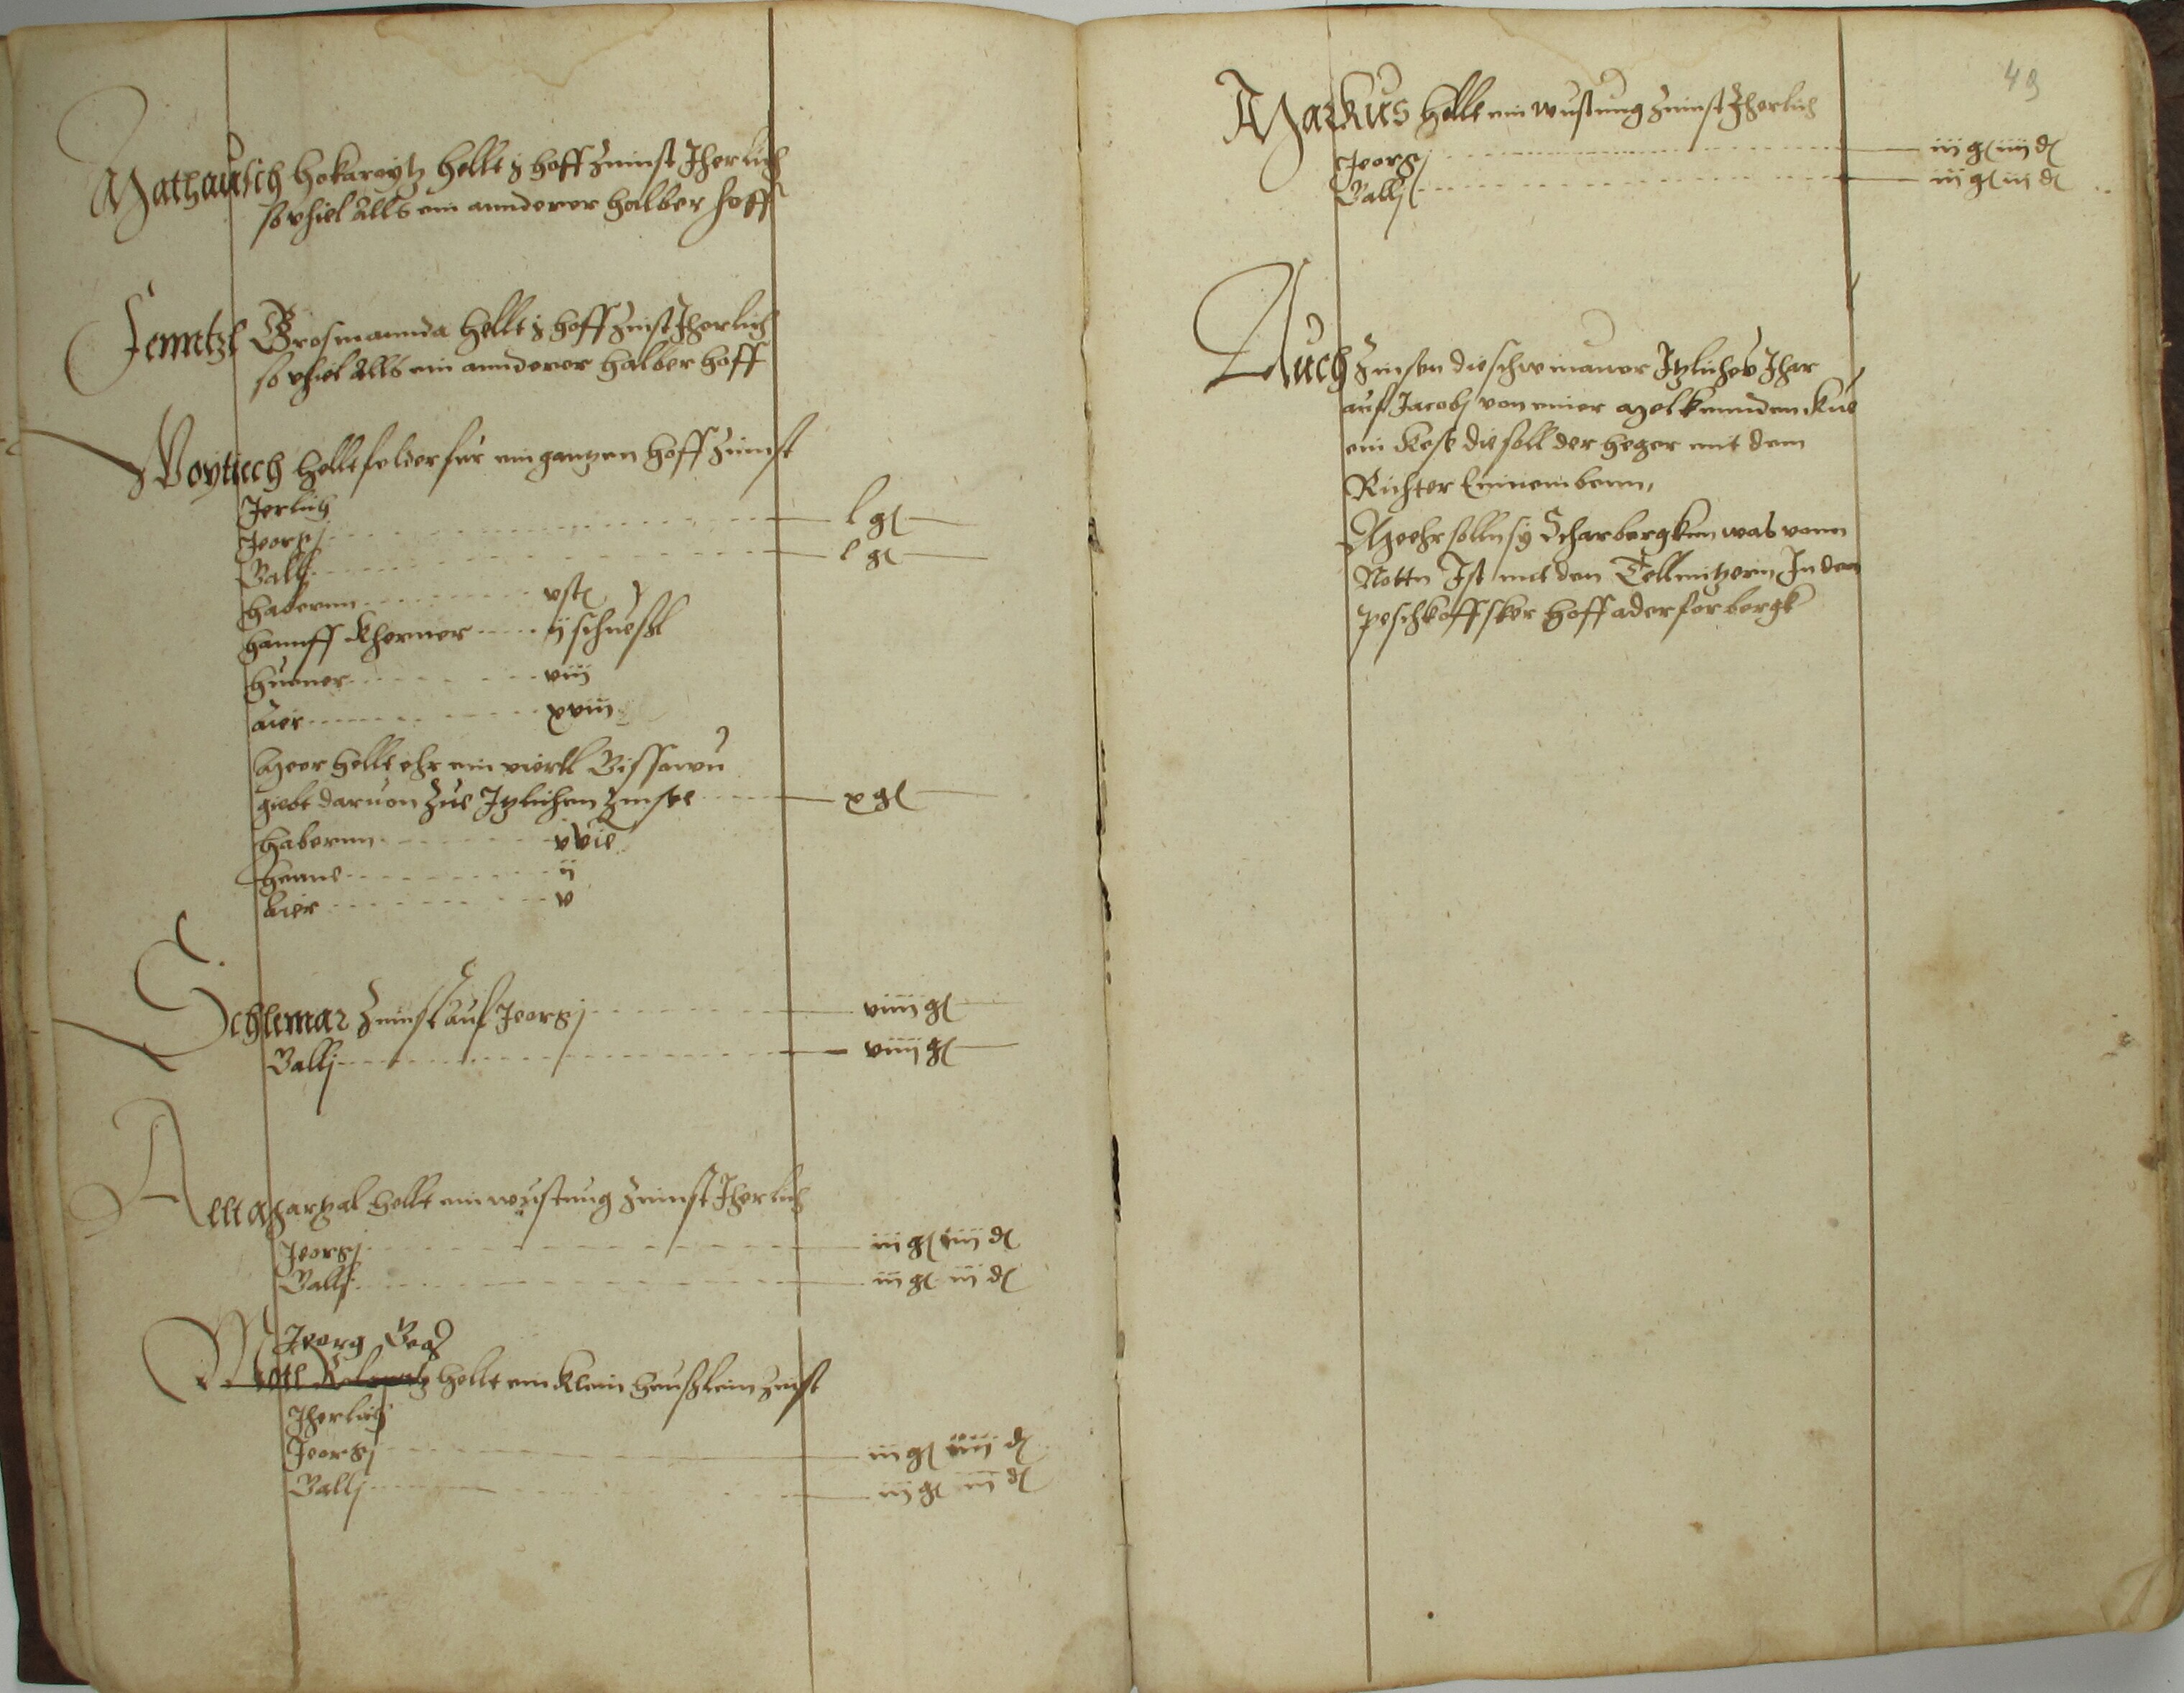 Mathausch Hokaroytz hellt ½ hoff Zeinst Jherlich
so vhiel Alls ein annderer halber hoff
Jenntzl Grosmannda hellt ½ hoff Zinst Jherlich
so vhiel Alls ein annderer halber hoff
Woytiech hellt felder fur ein gantzen hoff Zeinst
Jerlich
Jeorgj l g
Gallj l g
habernn v st
hannff Khorner ij schuessl
huener viij
aier xviij
Meer hellt ehr ein vierttl
giebt daruon Zue Jtzlichen Zinste x g
habernn v vie
henne ij
aier v
Schlemar Zeinst auf Jeorgj viiij g
Gallj viiij g
Allt hellt ein wustung Zeinst Jherlich
Jeorgj iij g iiij d
Gallj iij g iij d
Jeorg
hellt ein Klein heuszlein Zinst
Jherlich
Jeorgj iij g iiij d
Gallj iij g iij d
49
Markus hellt ein wustung Zeinst Jherlich
Jeorgj iij g iiij d
Gallj iij g iij d
Auch Zinsen die schweinauer Jtzliches Jhar
auf Jacobj von einer Melkennden Kue
ein Kese die soll der heger mit dem
Richter Einnemben,
Meehr sollen sy Scharbergken was vonn
Notten Jst mit den Tellnitzern Jn den
peschkoffsker hoff ader forbergk